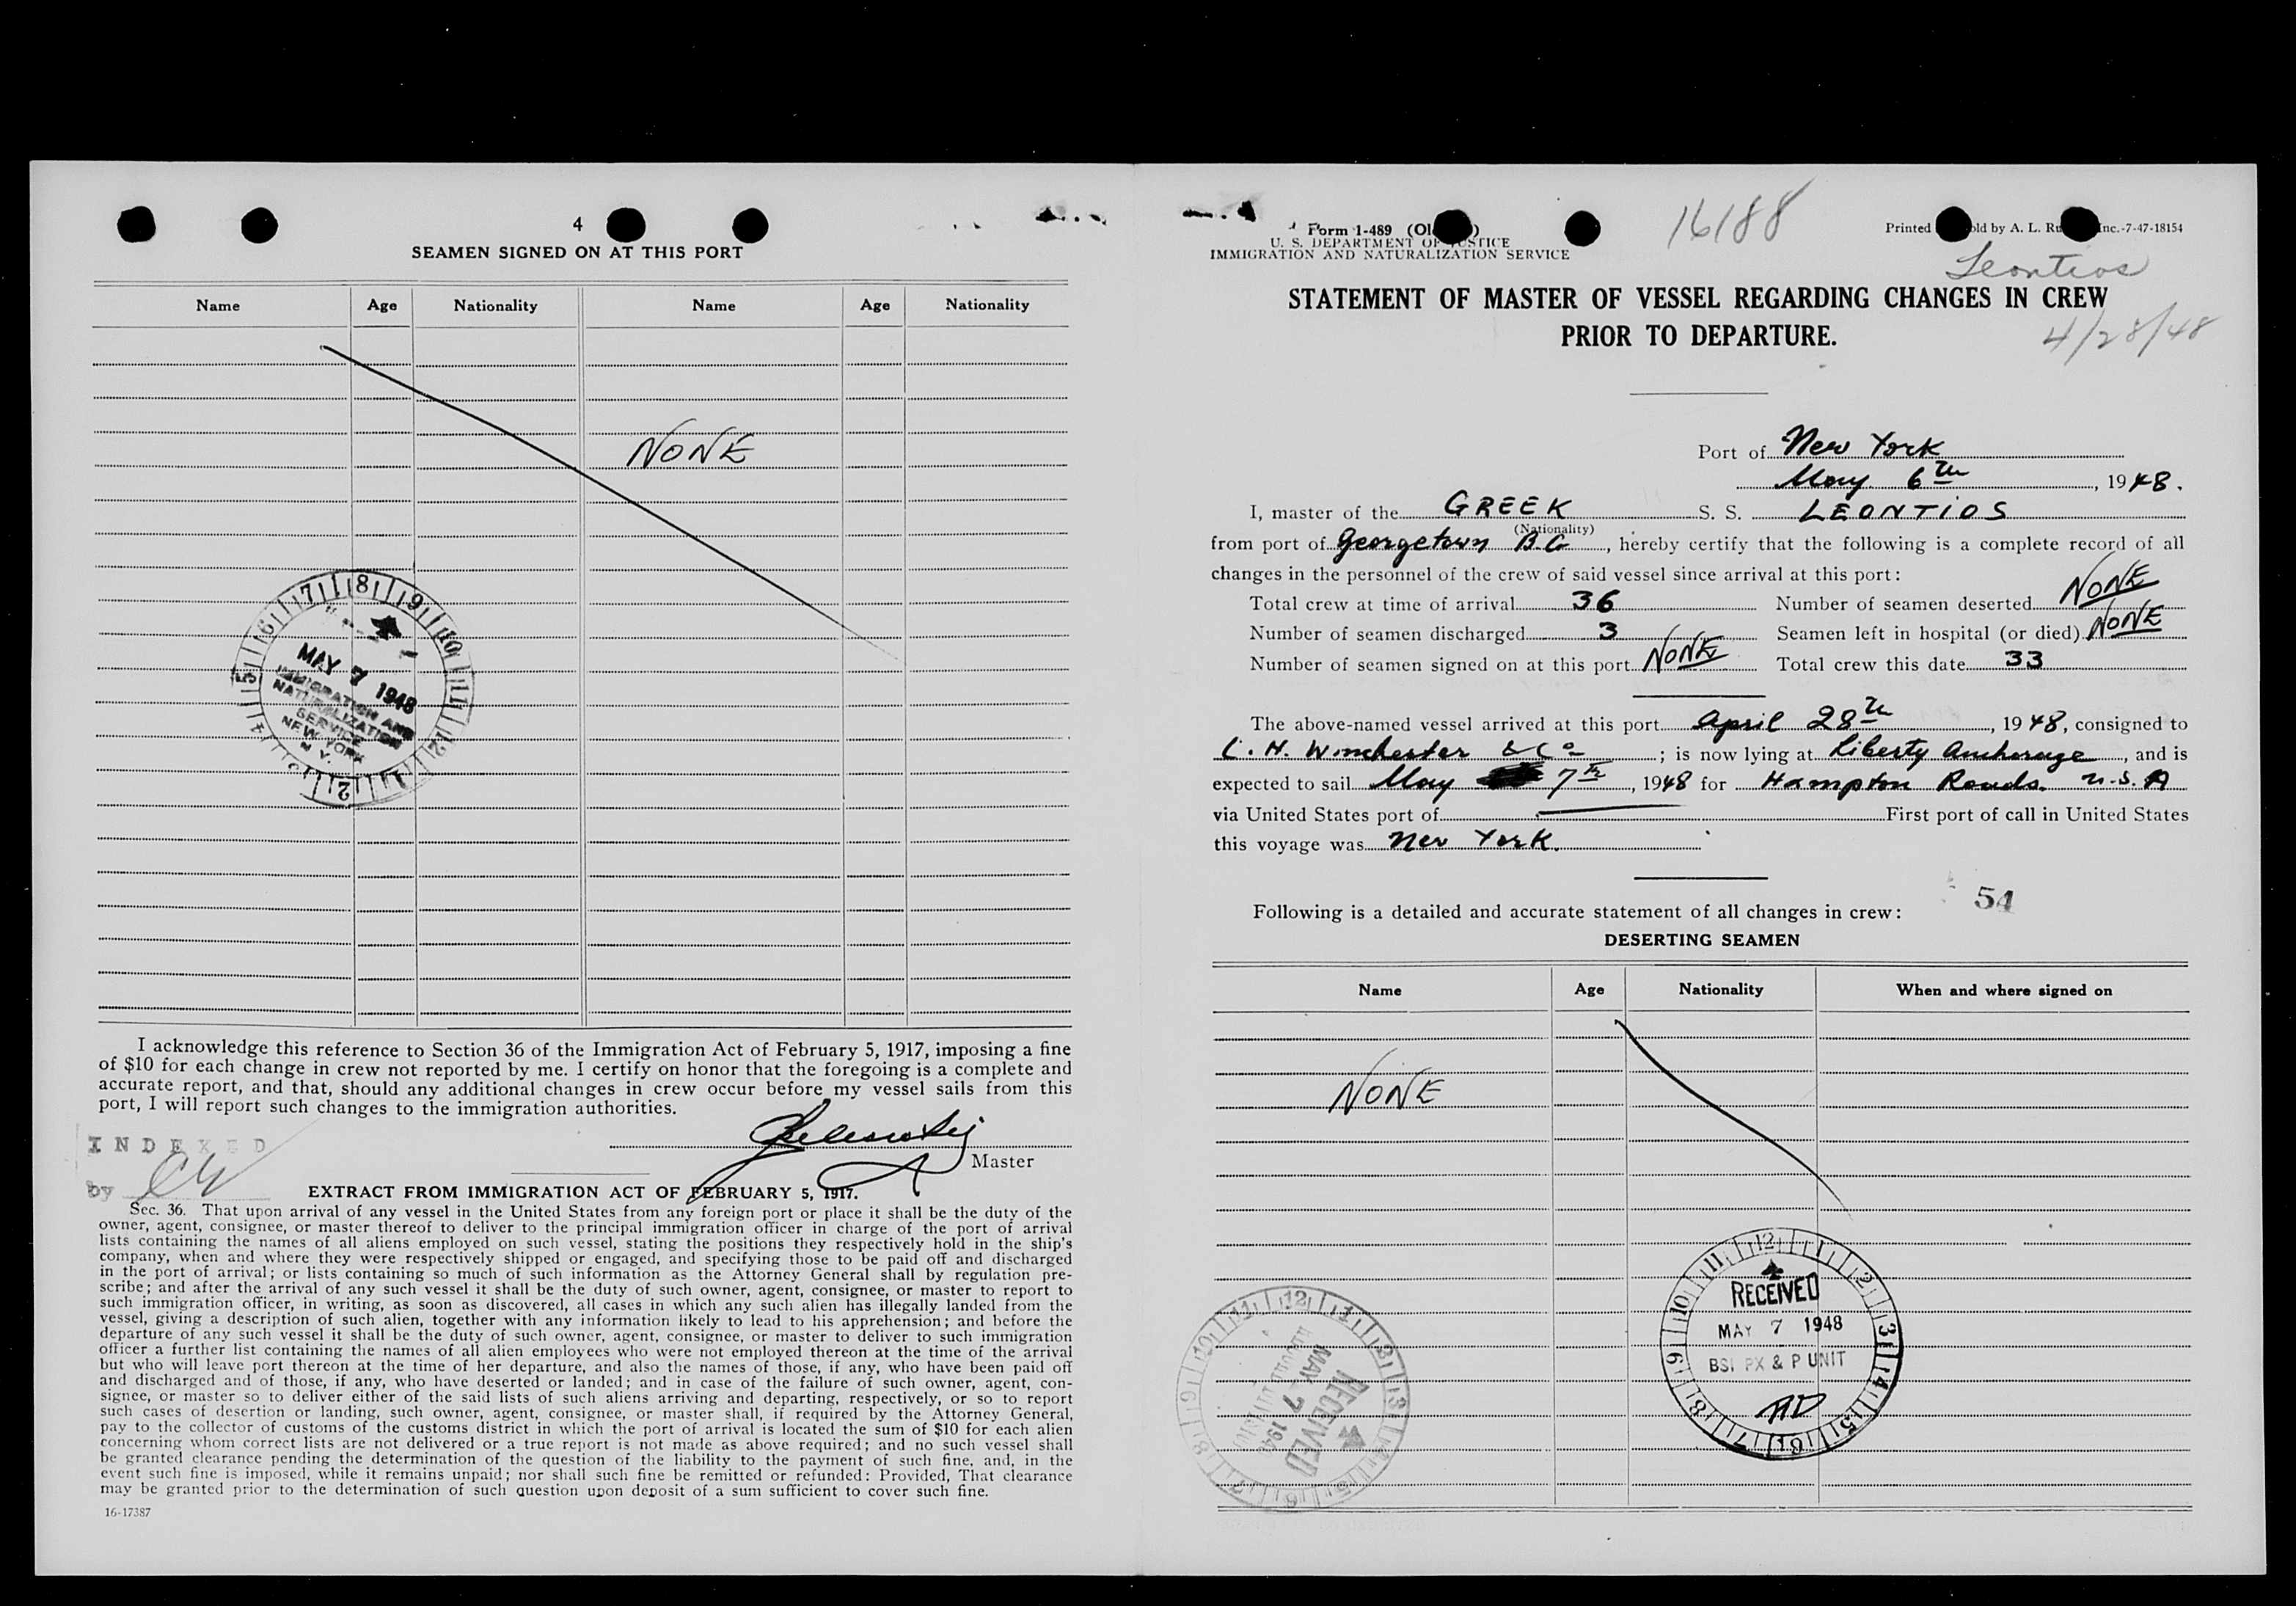 4
SEAMEN SIGNED ON AT THIS PORT
Name Age Nationality Name Age Nationality
NONE
7 8 9 10 11 12 1 2 5 6
MAY 7 1948
IMMIGRATION AND
NATURALIZATION
SERVICE
NEW YORK
N. Y.
I acknowledge this reference to Section 36 of the Immigration Act of February 5, 1917, imposing a fine
of $10 for each change in crew not reported by me. I certify on honor that the foregoing is a complete and
accurate report, and that, should any additional changes in crew occur before my vessel sails from this
port, I will report such changes to the immigration authorities.
INDEXED
Master
by
EXTRACT FROM IMMIGRATION ACT OF FEBRUARY 5, 1917.
Sec. 36. That upon arrival of any vessel in the United States from any foreign port or place it shall be the duty of the
owner, agent, consignee, or master thereof to deliver to the principal immigration officer in charge of the port of arrival
lists containing the names of all aliens employed on such vessel, stating the positions they respectively hold in the ship's
company, when and where they were respectively shipped or engaged, and specifying those to be paid off and discharged
in the port of arrival; or lists containing so much of such information as the Attorney General shall by regulation pre-
scribe; and after the arrival of any such vessel it shall be the duty of such owner, agent, consignee, or master to report to
such immigration officer, in writing, as soon as discovered, all cases in which any such alien has illegally landed from the
vessel, giving a description of such alien, together with any information likely to lead to his apprehension; and before the
departure of any such vessel it shall be the duty of such owner, agent, consignee, or master to deliver to such immigration
officer a further list containing the names of all alien employees who were not employed thereon at the time of the arrival
but who will leave port thereon at the time of her departure, and also the names of those, if any, who have been paid off
and discharged and of those, if any, who have deserted or landed; and in case of the failure of such owner, agent, con-
signee, or master so to deliver either of the said lists of such aliens arriving and departing, respectively, or so to report
such cases of desertion or landing, such owner, agent, consignee, or master shall, if required by the Attorney General,
pay to the collector of customs of the customs district in which the port of arrival is located the sum of $10 for each alien
concerning whom correct lists are not delivered or a true report is not made as above required; and no such vessel shall
be granted clearance pending the determination of the question of the liability to the payment of such fine, and, in the
event such fine is imposed, while it remains unpaid; nor shall such fine be remitted or refunded: Provided, That clearance
may be granted prior to the determination of such question upon deposit of a sum sufficient to cover such fine.
16-17387
Form 1-489
U. S. DEPARTMENT OF JUSTICE
IMMIGRATION AND NATURALIZATION SERVICE
16188
Printed by A. L. Inc.-7-47-18154
Leontios
STATEMENT OF MASTER OF VESSEL REGARDING CHANGES IN CREW
PRIOR TO DEPARTURE.
4/28/48
Port of New York
May 6th, 1948.
I, master of the GREEK S. S. LEONTIOS
(Nationality)
from port of Georgetown B.G, hereby certify that the following is a complete record of all
changes in the personnel of the crew of said vessel since arrival at this port:
Total crew at time of arrival 36 Number of seamen deserted NONE
Number of seamen discharged 3 Seamen left in hospital (or died) NONE
Number of seamen signed on at this port NONE Total crew this date 33
The above-named vessel arrived at this port April 28th, 1948, consigned to
C. H. Winchester & Co; is now lying at Liberty Anchorage, and is
expected to sail May 7th, 1948 for Hampton Roads. U.S.A
via United States port of First port of call in United States
this voyage was New York.
54
Following is a detailed and accurate statement of all changes in crew:
DESERTING SEAMEN
Name Age Nationality When and where signed on
NONE
12 1 2 3 4 5 6 7 8 9 10 11
RECEIVED
MAY 7 1948
BSI PX & P UNIT
AD
RECEIVED
MAY 7 1948